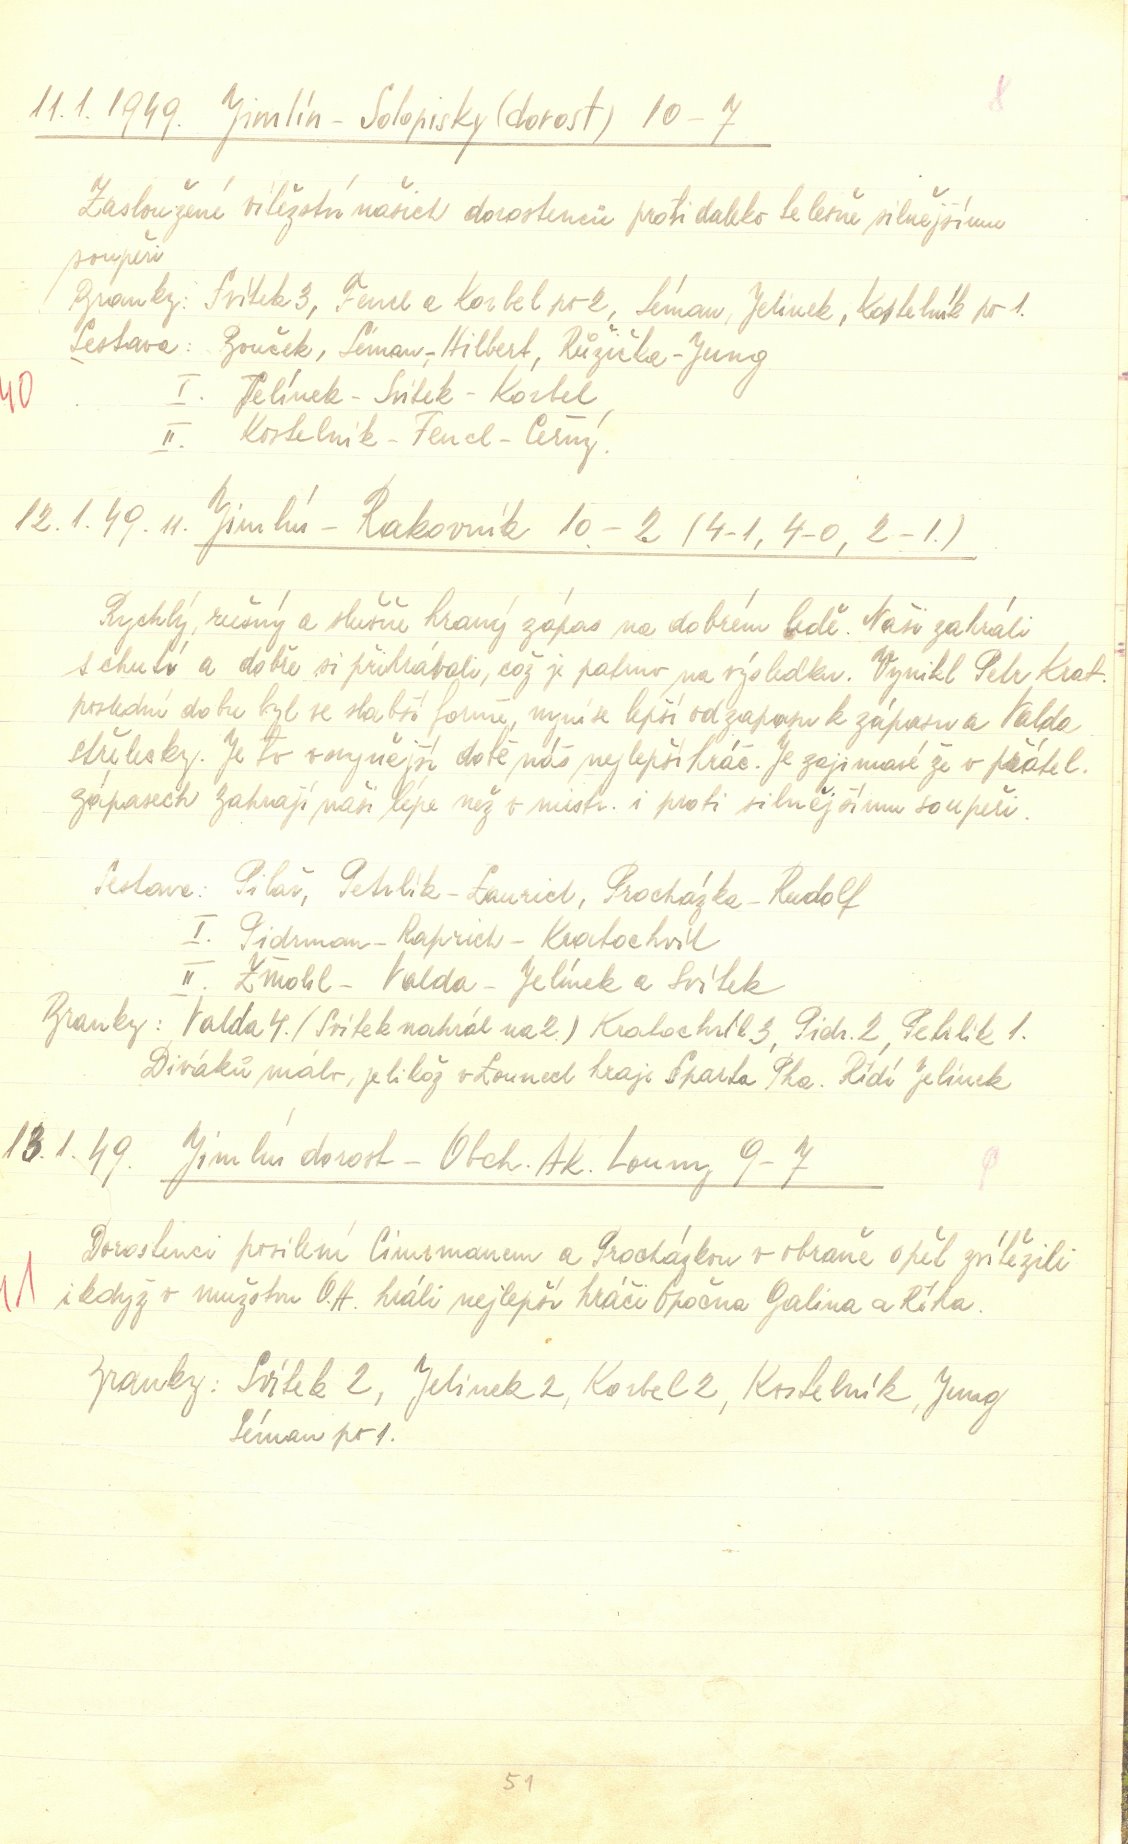 11.1.1949. Jimlín - Solopisky (dorost) 10 - 7
8
Zasloužené vítězství našich dorostenců proti daleko tělesně silnějšímu
soupeři
Branky: Svítek 3, Fencl a Korbel po 2, Séman, Jelínek, Kostelník po 1.
Sestava: Bouček, Séman - Hilbert, Růžička - Jung
40
I. Jelínek - Svítek - Korbel
II. Kostelník - Fencl - Černý.
12.1.49. u. Jimlín - Rakovník 10 - 2 (4-1, 4-0, 2-1.)
Rychlý, rušný a slušně hraný zápas na dobrém ledě. Naši zahráli
s chutí a dobře si přihrávali, což je patrno na výsledku. Vynikl Petr Krat.
poslední dobu byl ve slabší formě, nyní se lepší od zápasu k zápasu a Valda
střelecky. Je to v nynější době náš nejlepší hráč. Je zajímavé že v přátel.
zápasech zahrají naši lépe než v mistr. i proti silnějšímu soupeři.
Sestava: Pilař, Petrlík - Laurich, Procházka - Rudolf
I. Pidrman - Raprich - Kratochvíl
II. Žmohl - Valda - Jelínek a Svítek
Branky: Valda 4. (Svítek nahrál na 2.) Kratochvíl 3, Pidr. 2, Petrlík 1.
Diváků málo, jelikož v Lounech hraje Sparta Pha. Řídí Jelínek
13.1.49. Jimlín dorost - Obch. Ak. Louny 9 - 7
9
Dorostenci posíleni Cimrmanem a Procházkou v obraně opět zvítězili
i když v mužstvu O.A. hráli nejlepší hráči Opočna Galina a Říha.
41
Branky: Svítek 2, Jelínek 2, Korbel 2, Kostelník, Jung
Séman po 1.
51